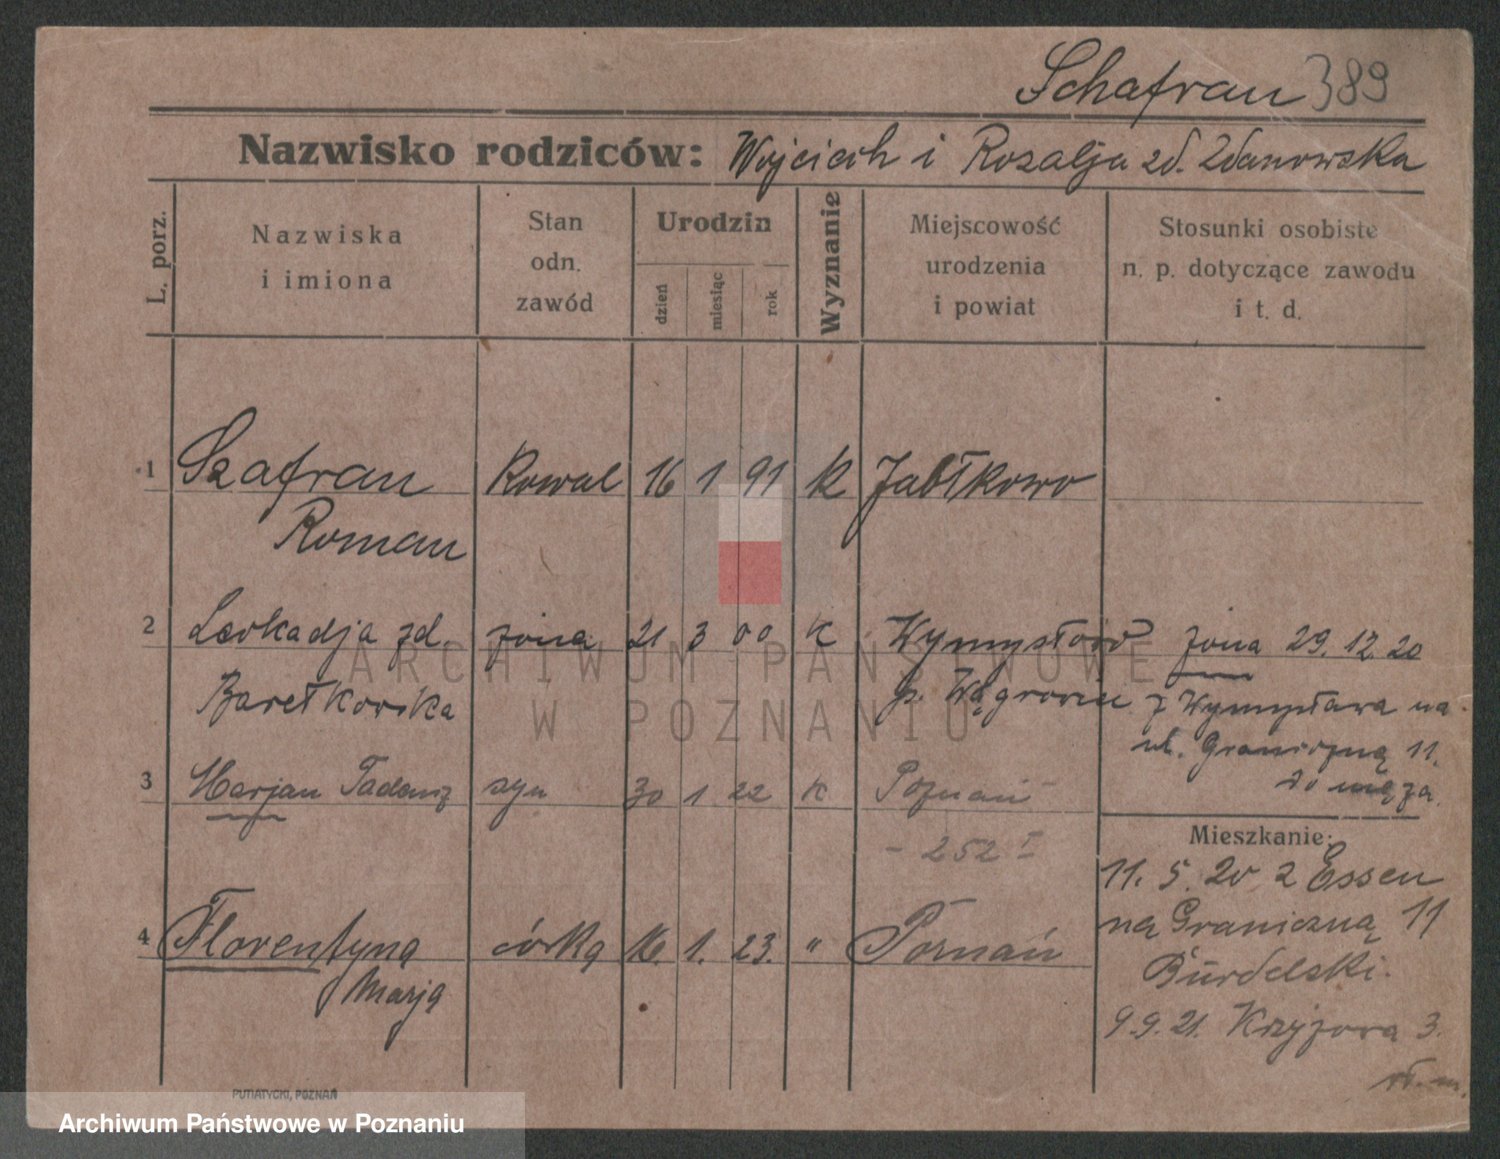 Schafran 389
Nazwisko rodziców: Wojciech i Rozalja zd. Zdanowska
L. porz.
Nazwiska
i imiona
Stan
odn.
zawód
Urodzin
dzień
miesiąc
rok
Wyznanie
Miejscowość
urodzenia
i powiat
Stosunki osobiste
n. p. dotyczące zawodu
i t. d.
1 Szafran Kowal 16 1 91 k Jabłkowo
Roman
2 Leokadja zd. żona 21 3 00 k Wymysłowo żona 29.12.20
Barełkowska p. Wągrowiec z Wymysława na
ul. Graniczną 11.
do męża.
3 Marjan Tadeusz syn 30 1 22 k Poznań
- 252 I
Mieszkanie:
11. 5. 20 z Essen
na Graniczną 11
4 Florentyna córka 16. 1. 23. " Poznań
Marja
Burdelski.
9.9.21. Krzyżowa 3.
PUTIATYCKI, POZNAŃ
ARCHIWUM PAŃSTWOWE
W POZNANIU
Archiwum Państwowe w Poznaniu